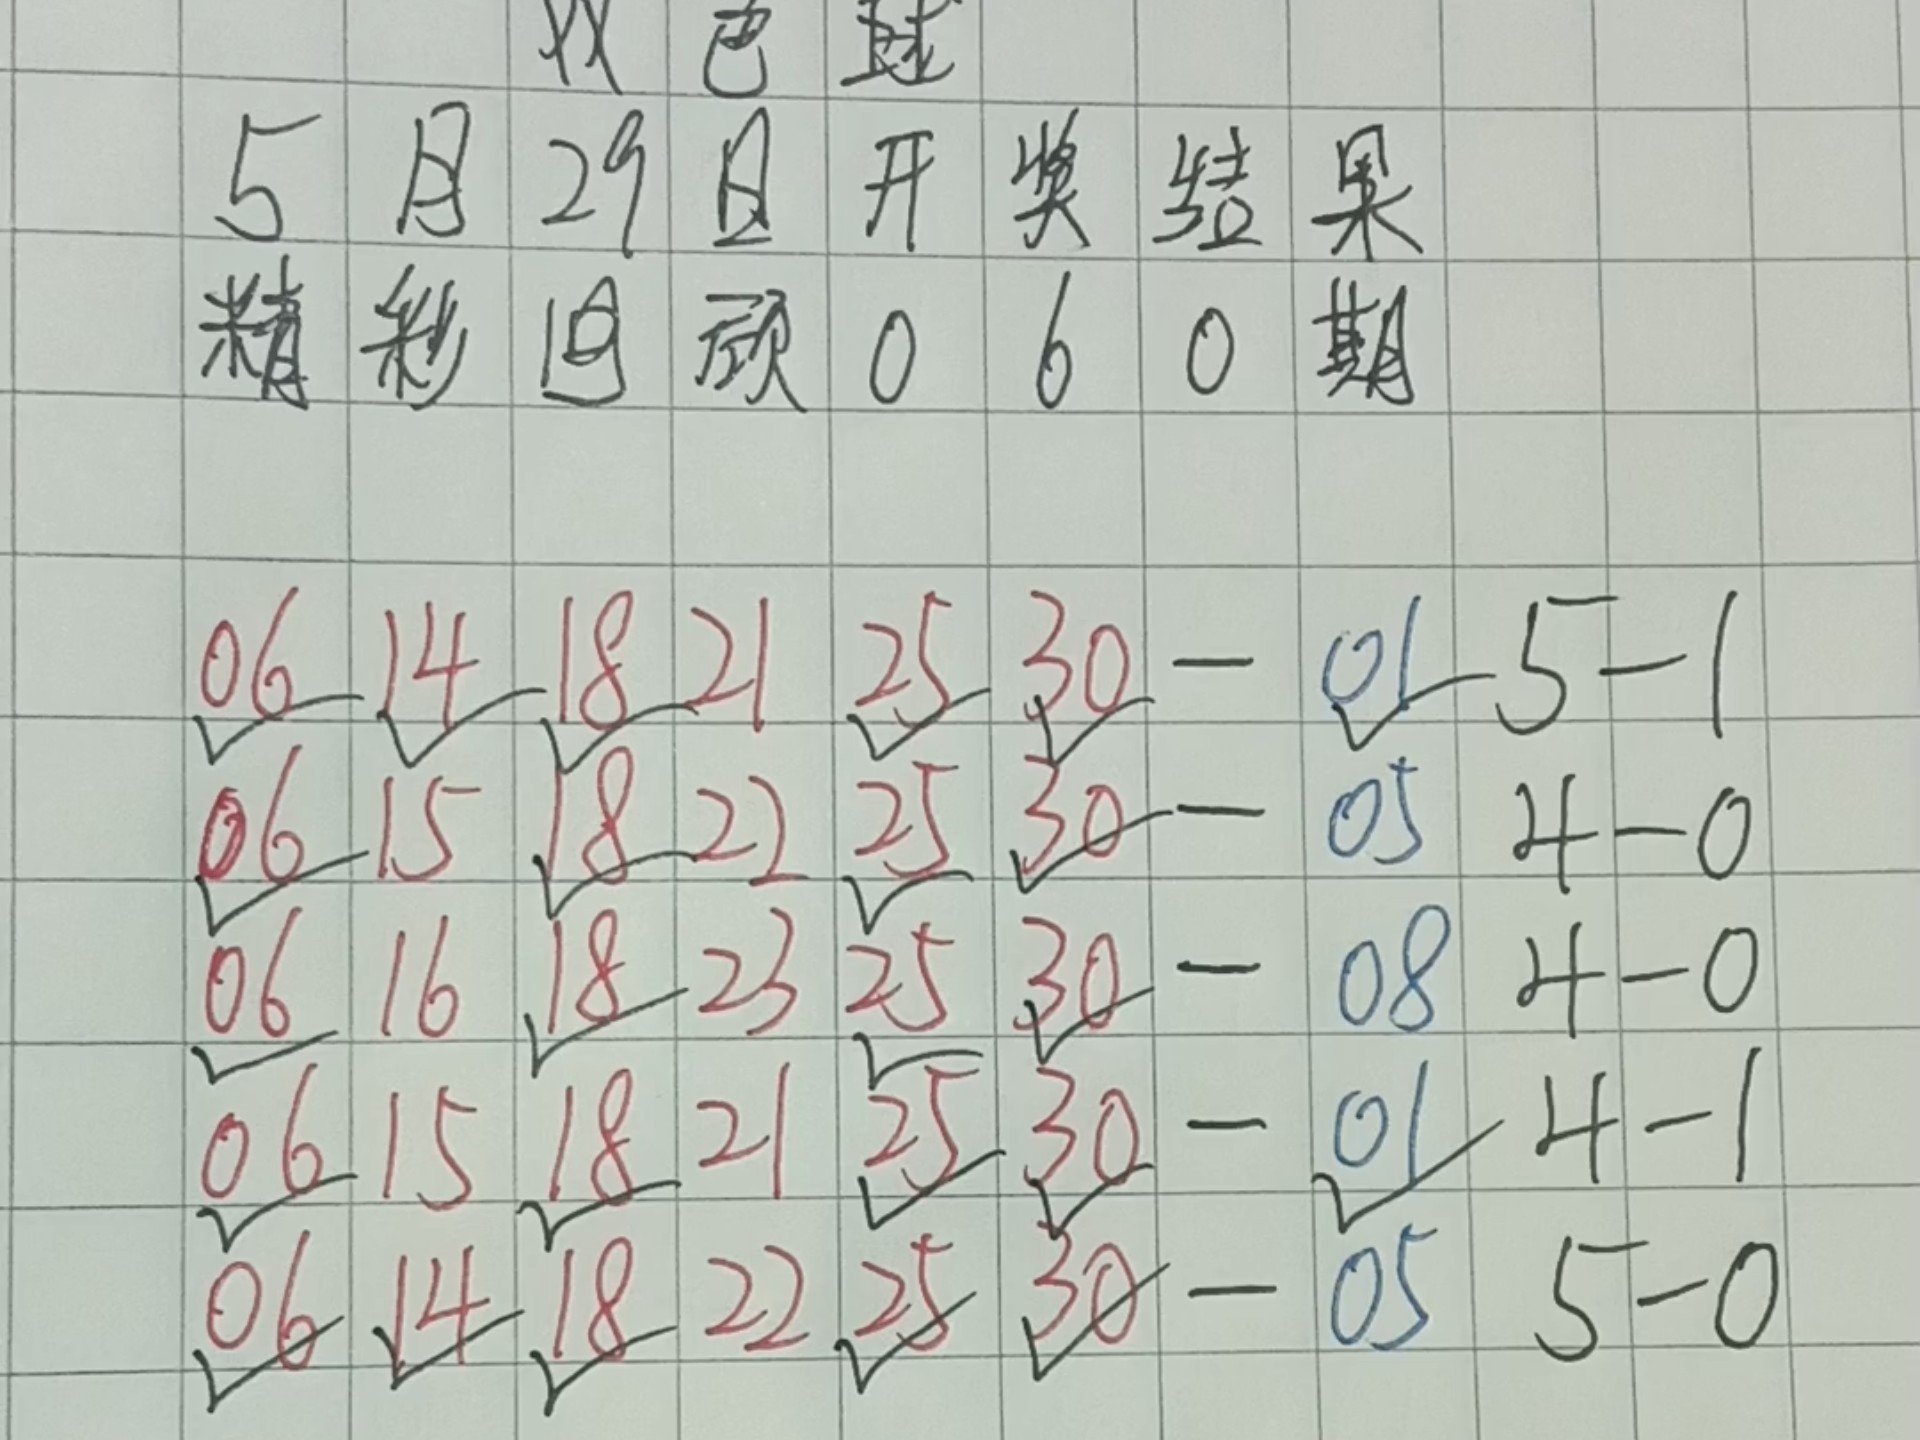 双色球
5月29日开奖结果
精彩回顾060期
06 14 18 21 25 30 — 01 5—1
06 15 18 22 25 30 — 05 4—0
06 16 18 23 25 30 — 08 4—0
06 15 18 21 25 30 — 01 4—1
06 14 18 22 25 30 — 05 5—0